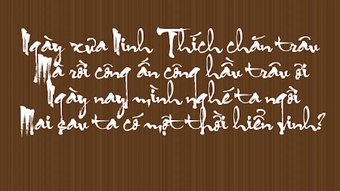 Ngày xưa Ninh Thích chăn trâu
Mà rồi công ấn công hầu trâu ơi
Ngày nay mình nghé ta ngồi
Mai sau ta có một thời hiển vinh?